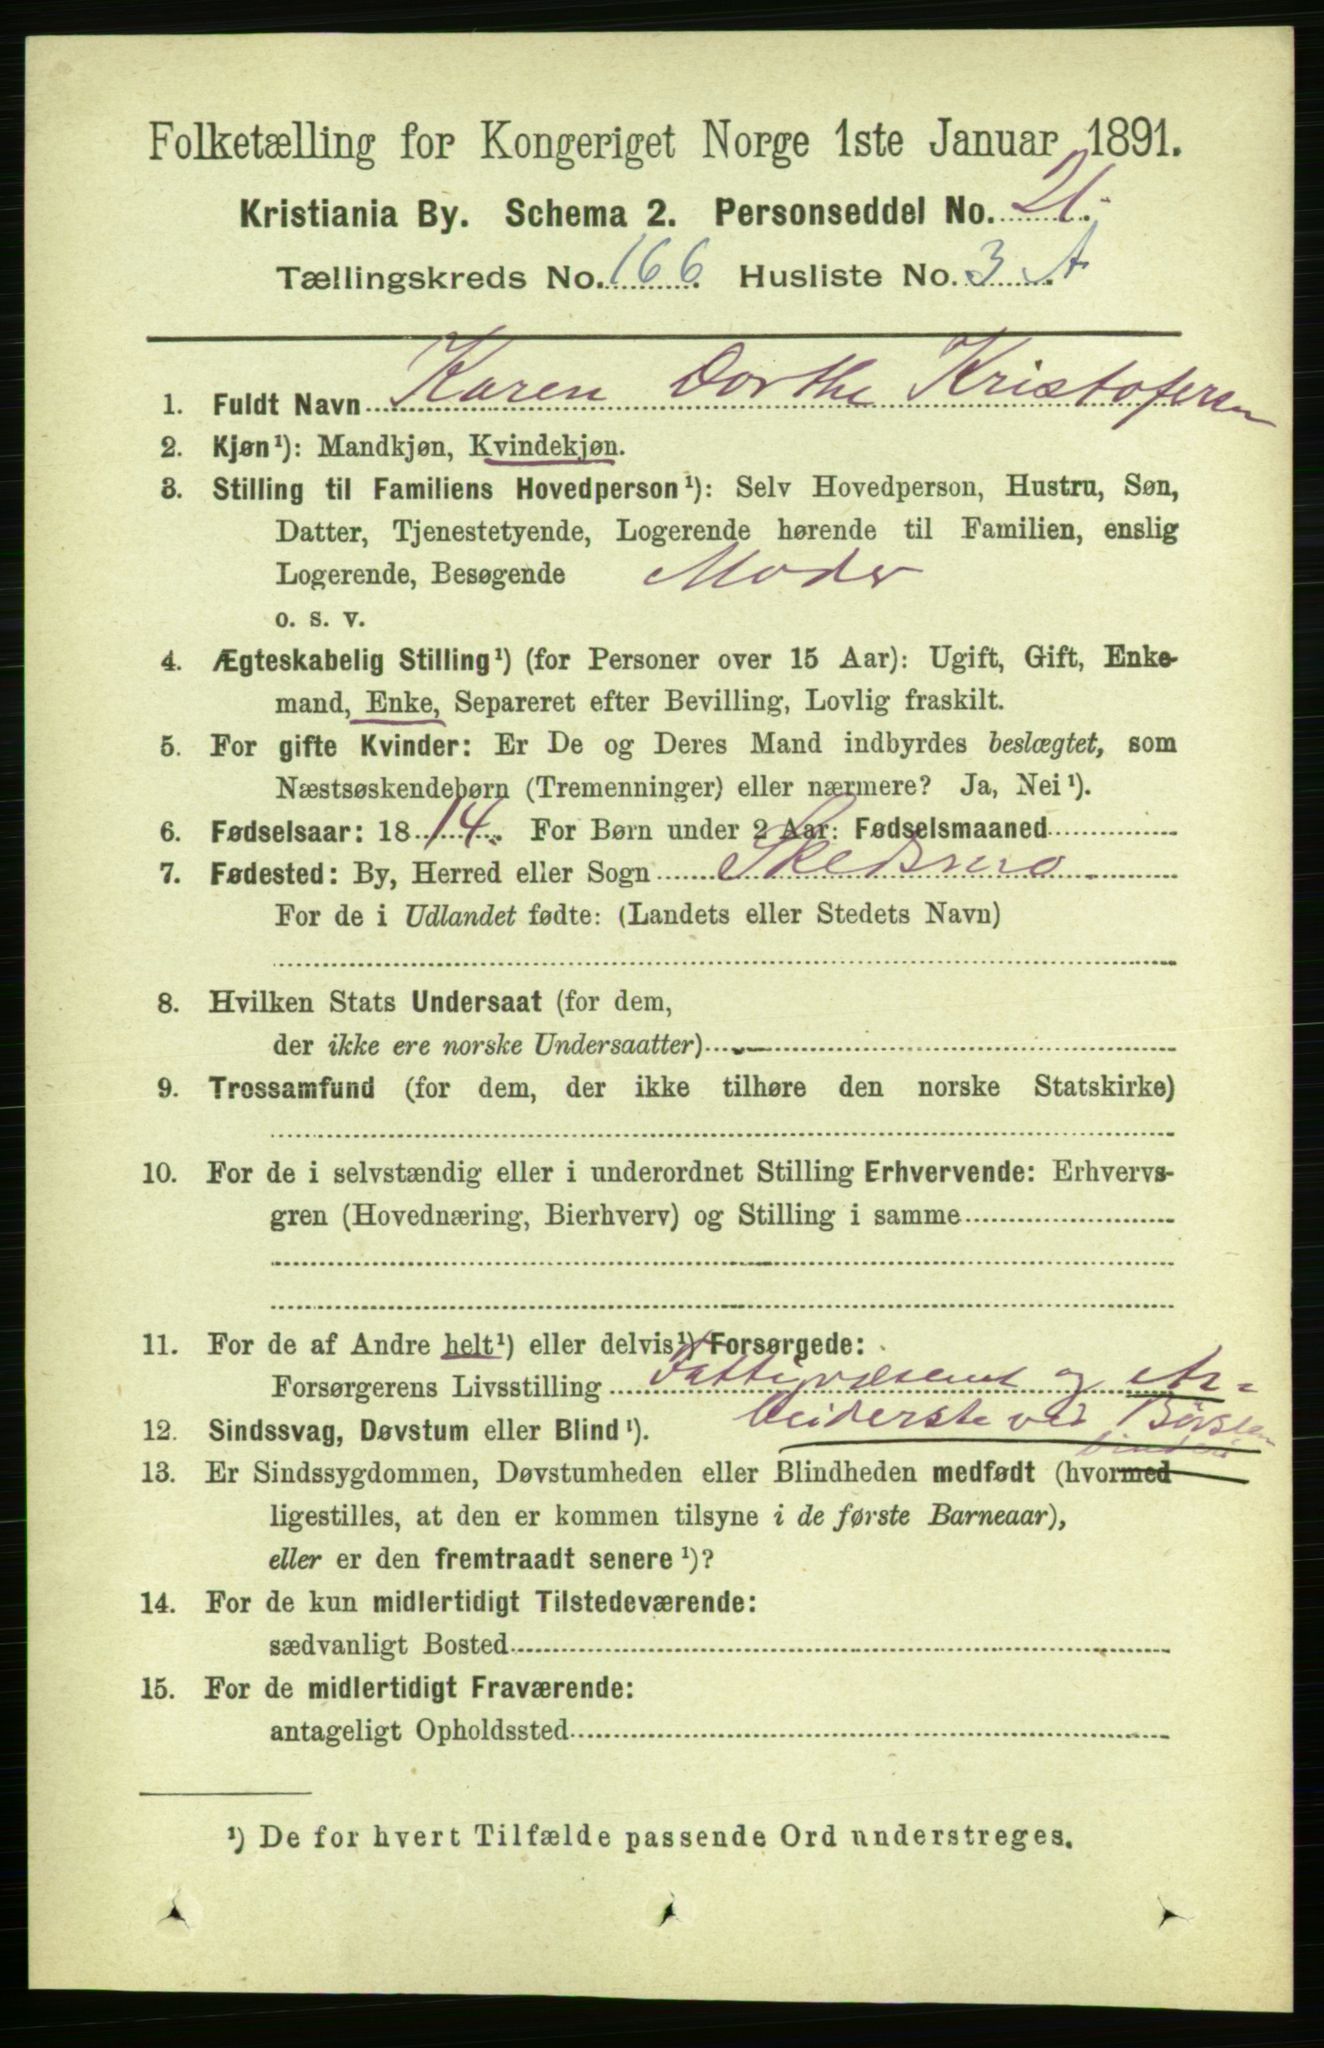 Folketælling for Kongeriget Norge 1ste Januar 1891.
Kristiania By. Schema 2. Personseddel No. 21.
Tællingskreds No. 166. Husliste No. 3 A
1. Fuldt Navn Karen Dorthe Kristofersen
2. Kjøn¹): Mandkjøn, Kvindekjøn.
3. Stilling til Familiens Hovedperson¹): Selv Hovedperson, Hustru, Søn,
Datter, Tjenestetyende, Logerende hørende til Familien, enslig
Logerende, Besøgende Moder
o. s. v.
4. Ægteskabelig Stilling¹) (for Personer over 15 Aar): Ugift, Gift, Enke-
mand, Enke, Separeret efter Bevilling, Lovlig fraskilt.
5. For gifte Kvinder: Er De og Deres Mand indbyrdes beslægtet, som
Næstsøskendebørn (Tremenninger) eller nærmere? Ja, Nei¹).
6. Fødselsaar: 1814. For Børn under 2 Aar: Fødselsmaaned
7. Fødested: By, Herred eller Sogn Skedsmo
For de i Udlandet fødte: (Landets eller Stedets Navn)
8. Hvilken Stats Undersaat (for dem,
der ikke ere norske Undersaatter)
9. Trossamfund (for dem, der ikke tilhøre den norske Statskirke)
10. For de i selvstændig eller i underordnet Stilling Erhvervende: Erhvervs-
gren (Hovednæring, Bierhverv) og Stilling i samme
11. For de af Andre helt¹) eller delvis¹) Forsørgede:
Forsørgerens Livsstilling Fattigvæsenet og Ar=
beiderske ved Børsten
binderi
12. Sindssvag, Døvstum eller Blind¹).
13. Er Sindssygdommen, Døvstumheden eller Blindheden medfødt (hvormed
ligestilles, at den er kommen tilsyne i de første Barneaar),
eller er den fremtraadt senere¹)?
14. For de kun midlertidigt Tilstedeværende:
sædvanligt Bosted
15. For de midlertidigt Fraværende:
antageligt Opholdssted
¹) De for hvert Tilfælde passende Ord understreges.